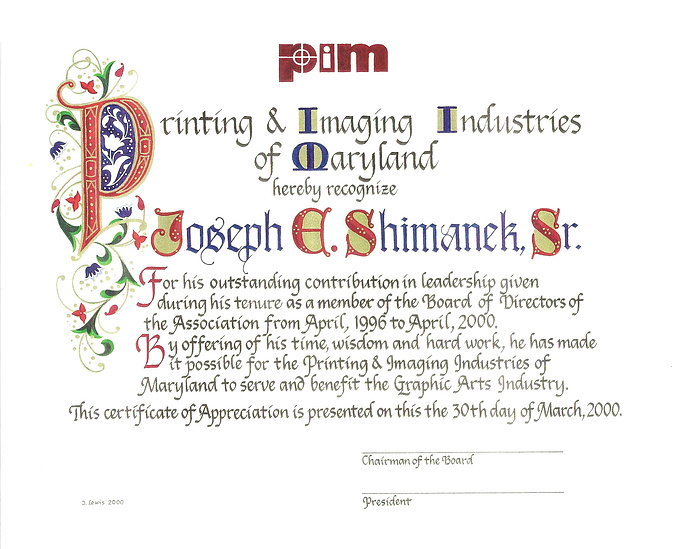 pim
Printing & Imaging Industries
of Maryland
hereby recognize
Joseph E. Shimanek, Sr.
For his outstanding contribution in leadership given
during his tenure as a member of the Board of Directors of
the Association from April, 1996 to April, 2000.
By offering of his time, wisdom and hard work, he has made
it possible for the Printing & Imaging Industries of
Maryland to serve and benefit the Graphic Arts Industry.
This certificate of Appreciation is presented on this the 30th day of March, 2000.
Chairman of the Board
J. Lewis 2000
President